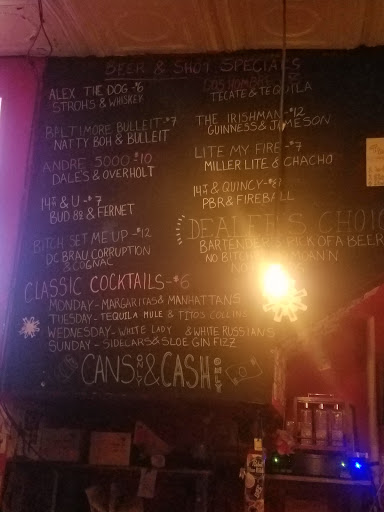 BEER & SHOT SPECIALS
ALEX THE DOG -$6
STROHS & WHISKEY
BALTIMORE BULLEIT -$7
NATTY BOH & BULLEIT
ANDRE 5000 $10
DALE'S & OVERHOLT
14th & U -$7
BUD & FERNET
BITCH SET ME UP -$12
DC BRAU CORRUPTION
& COGNAC
DOS HOMBRE
TECATE & TEQUILA
THE IRISHMAN $12
GUINNESS & JAMESON
LITE MY FIRE -$7
MILLER LITE & CHACHO
14th & QUINCY -$
PBR & FIREBALL
DEALER'S CHOI
BARTENDER'S PICK OF A BEER
NO BITCHIN MOANN
NO
CLASSIC COCKTAILS -$6
MONDAY - MARGARITAS & MANHATTANS
TUESDAY - TEQUILA MULE & TITOS COLLINS
WEDNESDAY - WHITE LADY & WHITE RUSSIANS
SUNDAY - SIDECARS & SLOE GIN FIZZ
CANS & CASH ONLY